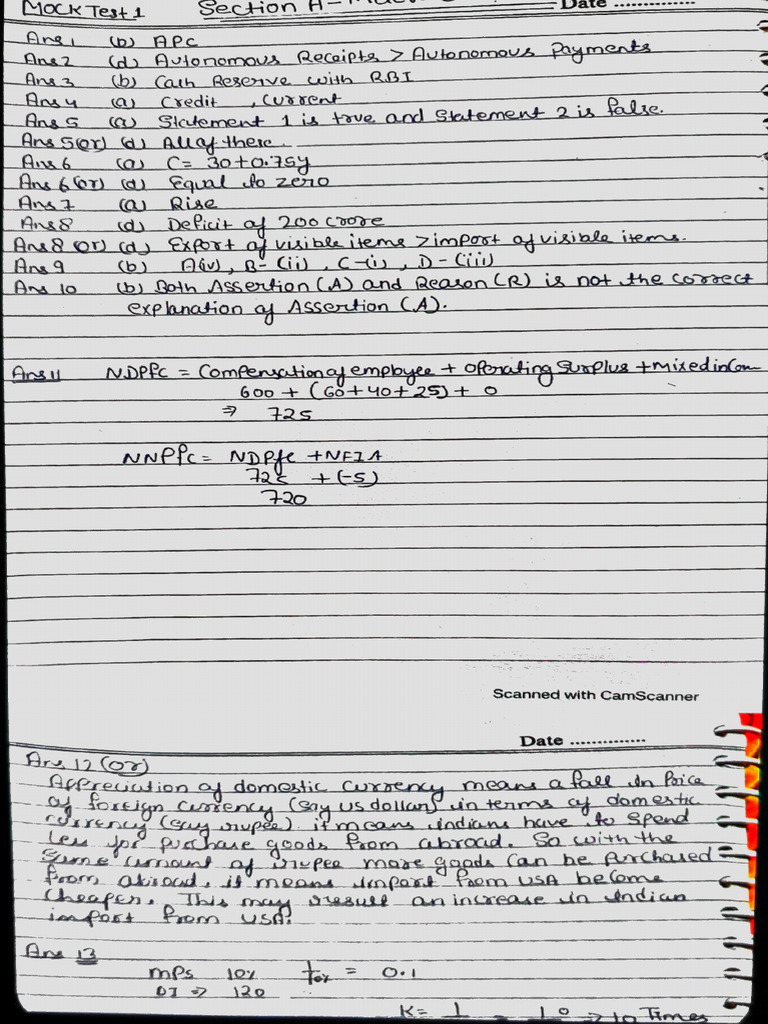 MOCK Test 1 Section A- Date ..............
Ans 1 (b) APC
Ans 2 (d) Autonomous Receipts > Autonomous Payments
Ans 3 (b) Cash Reserve with RBI
Ans 4 (a) Credit , Current
Ans 5 (a) Statement 1 is true and Statement 2 is false.
Ans 5(or) (d) All of these.
Ans 6 (a) C = 30+0.75y
Ans 6(or) (d) Equal to zero
Ans 7 (a) Rise
Ans 8 (d) Deficit of 200 crore
Ans 8 (or) (d) Export of visible items > import of visible items.
Ans 9 (b) A(iv), B-(ii), C-(i), D-(iii)
Ans 10 (b) Both Assertion (A) and Reason (R) is not the correct
explanation of Assertion (A).
Ans 11 NDPfc = Compensation of employee + Operating Surplus + mixed incom
600 + (60+40+25) + 0
⇒ 725
NNPfc = NDPfc + NFIA
725 + (-5)
720
Scanned with CamScanner
Date ..............
Ans 12 (or)
Appreciation of domestic currency means a fall in Price
of foreign currency (say us dollar) in terms of domestic
currency (say rupee). it means indians have to spend
less for purchase goods from abroad. So with the
same amount of rupee more goods can be purchased
from abroad. it means import from USA become
cheaper. This may result an increase in indian
import from USA.
Ans 13
mps 10% = 0.1
DI ⇒ 120
K = 1 = 10 ⇒ 10 Times